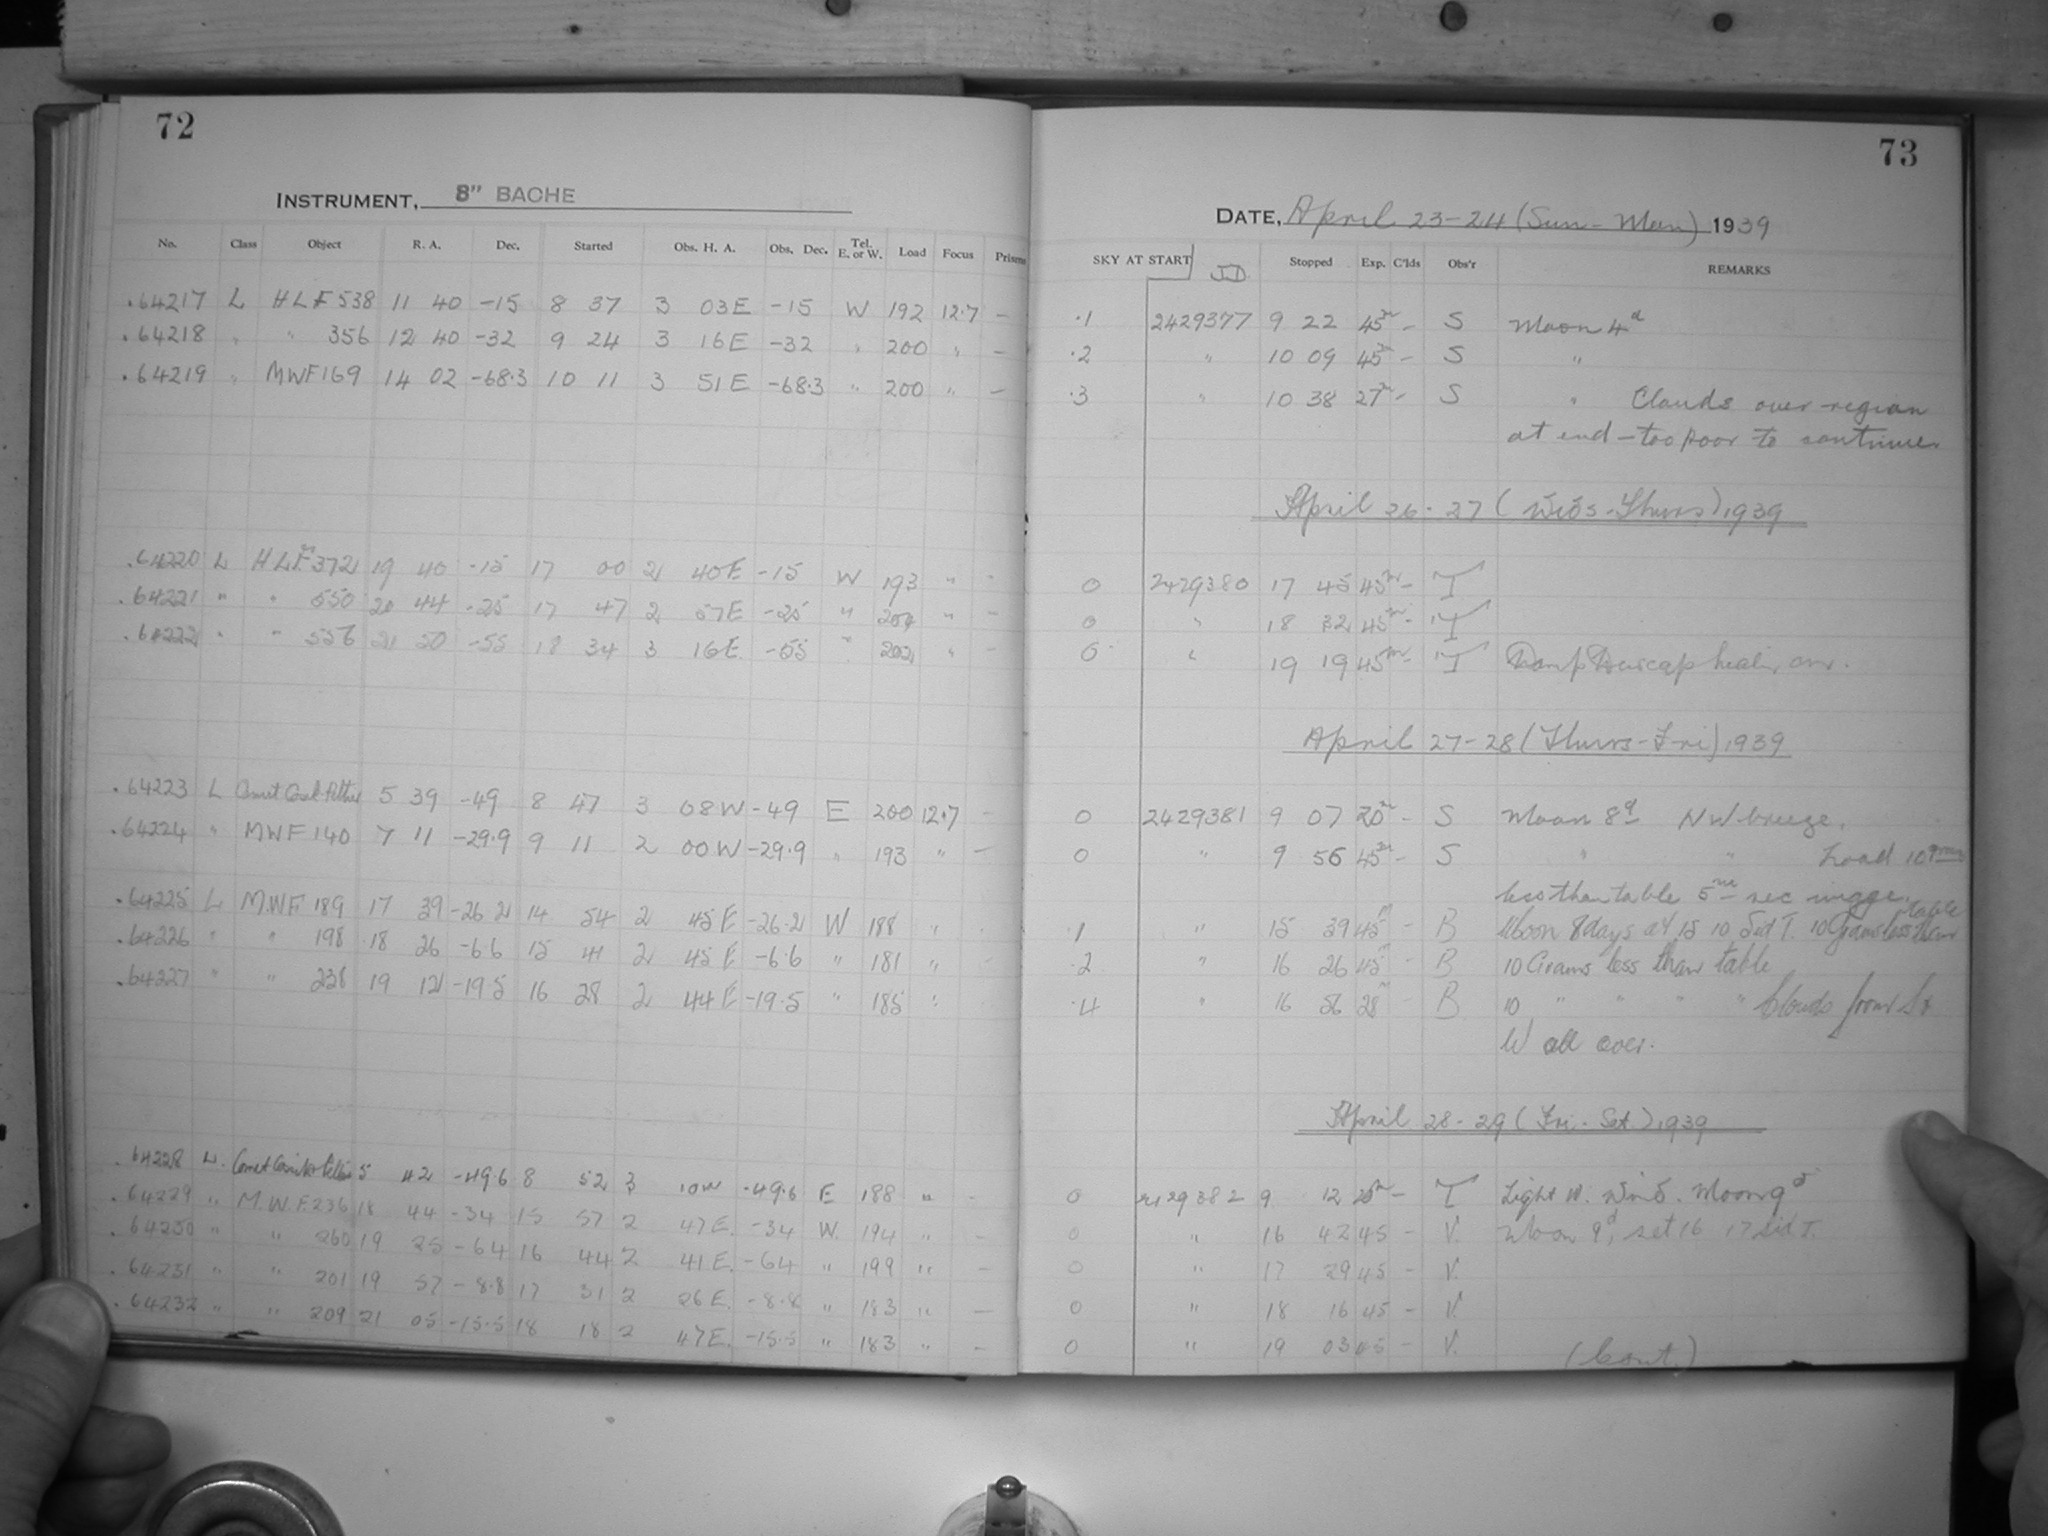 72
INSTRUMENT, 8" BACHE
No. Class Object R. A. Dec. Started Obs. H. A. Obs. Dec. Tel. E. or W. Load Focus Prisms
.64217 L HLF 538 11 40 -15 8 37 3 03E -15 W 192 12.7 -
.64218 " " 356 12 40 -32 9 24 3 16E -32 " 200 " -
.64219 " MWF 169 14 02 -68.3 10 11 3 51E -68.3 " 200 " -
.64220 L HLF 372 19 40 -15 17 00 2 40E -15 W 193 " -
.64221 " " 550 20 44 -25 17 47 2 57E -25 " 204 " -
.64222 " " 556 21 50 -55 18 34 3 16E -55 " 202 " -
.64223 L Comet 5 39 -49 8 47 3 08W -49 E 200 12.7 -
.64224 " MWF 140 7 11 -29.9 9 11 2 00W -29.9 " 193 " -
.64225 L MWF 189 17 39 -26.2 14 54 2 45E -26.2 W 188 "
.64226 " " 198 18 26 -6.6 15 41 2 45E -6.6 " 181 "
.64227 " " 19 12 -19.5 16 28 2 44E -19.5 " 185 "
.64228 L. Comet 5 42 -49.6 8 52 3 10W -49.6 E 188 " -
.64229 " M.W.F. 236 18 44 -34 15 57 2 47E. -34 W. 194 " -
.64230 " " 260 19 25 -64 16 44 2 41E. -64 " 199 " -
.64231 " " 201 19 57 -8.8 17 31 2 26E. -8.8 " 183 " -
.64232 " " 209 21 05 -15.5 18 18 2 47E. -15.5 " 183 " -
73
DATE, April 23-24 (Sun-Mon) 1939
SKY AT START J.D. Stopped Exp. C'lds Obs'r REMARKS
.1 2429377 9 22 45m - S Moon 4d
.2 " 10 09 45m - S "
.3 " 10 38 27m - S " Clouds over region
at end - too poor to continue
April 26-27 (Wed-Thurs) 1939
0 2429380 17 45 45m - T
0 " 18 32 45m - T
0 " 19 19 45m - T Damp Dewcap heater on.
April 27-28 (Thurs-Fri) 1939
0 2429381 9 07 20m - S Moon 8d NW breeze.
0 " 9 56 45m - S " " Load 10 grms
less than table 5
.1 " 15 39 45m - B Moon 8 days at 15 10 Sid T. 10 Grams less than table
.2 " 16 26 45m - B 10 Grams less than table
.4 " 16 56 28m - B 10 " " " " Clouds from S &
W all over.
April 28-29 (Fri-Sat) 1939
0 2429382 9 12 20m - T Light W. Wind. Moon 9d
0 " 16 42 45 - V. Moon 9d, set 16 17 Sid T.
0 " 17 29 45 - V.
0 " 18 16 45 - V.
0 " 19 03 45 - V.
(Cont.)